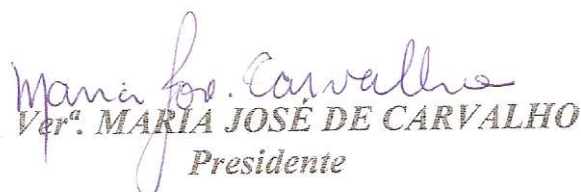 Maria Jos. Carvalho
Verª. MARIA JOSÉ DE CARVALHO
Presidente